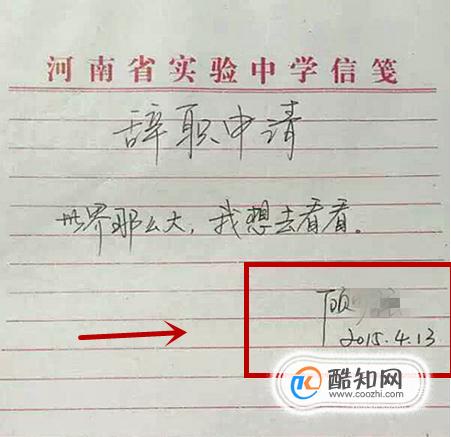 河南省实验中学信笺
辞职申请
世界那么大，我想去看看。
顾
2015.4.13
酷知网
www.coozhi.com